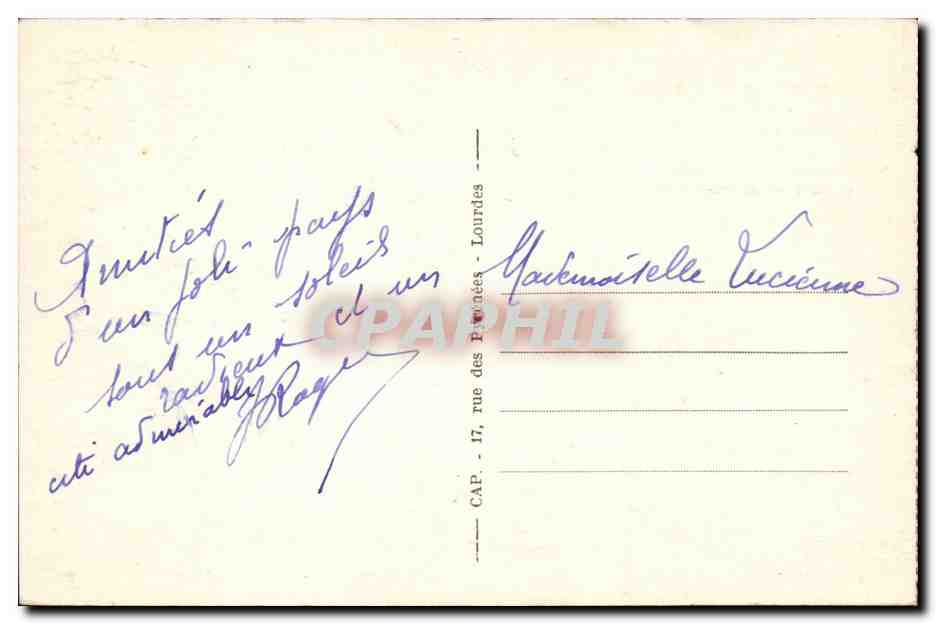 Amitiés
d'un joli pays
sous un soleil
radieux et un
cité admirable
Roger
CAP. - 17, rue des Pyrénées - Lourdes
Mademoiselle Lucienne
CPAPHIL